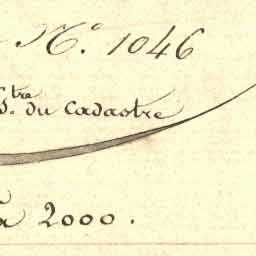 N.º 1046
S.tre du Cadastre
à 2000.